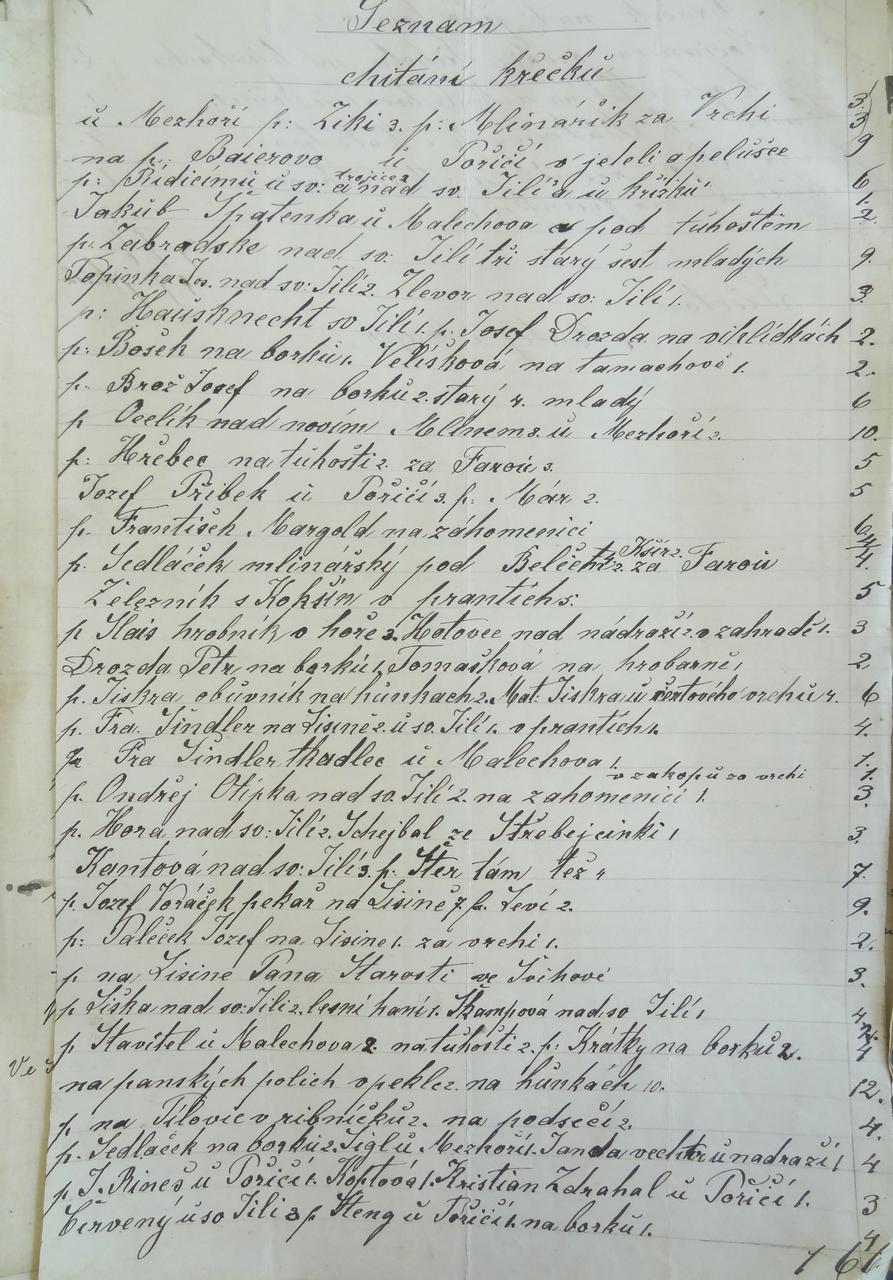 Seznam
chitání křečků
u Mezhoří p: Ziki 3. p: Mlinářik za Vrchi 3. 3
na p. Baierovo u Poříčí v jeteli a pelušce 9
p: Ridicimu u sv: trojice 2 a nad sv. Jilí 3 a u křížků 1. 6
Jakub Špatenka u Malechova a pod tuhoštěm 1. 2.
p. Zabradske nad sv. Jilí tři starý šest mladých 9.
Topinka Jos. nad sv: Jilí 2. Zlevor nad sv: Jilí 1. 3.
p: Hausknecht sv Jilí 1. p. Josef Drozda na vihlídkách 2.
p: Bošek na borku 1. Velíšková na tamachově 1. 2.
p. Brož Josef na borku 2. starý 4. mladý 6
p Ocelík nad novím Mlínem 8. u Mezhoří 2. 10.
p: Hřebec na tuhošti 2. za Farou 3. 5
Jozef Přibek u Poříčí 3. p. Már 2. 5
p. František Margold na záhomenici 6
p. Sedláček mlinářský pod Belčem 2. Kšír 2. za Farou 4.
Železník s Kokšín v prantích 5. 5
p Slais hrobník v hoře 2. Hotovec nad nádraží 2. v zahradě 1. 3
Drozda Petr na borku 1. Tomašková na hrobarně 1 2
p. Jiskra obuvník na hůnkach 2. Mat. Jiskra u čertového vrchu 4. 6
p. Fra. Šindler na Lisině 2. u sv. Jilí 1. v prantích 1. 4.
Fra Šindler tkadlec u Malechova 1. 1.
v zakopu za vrchi 1.
p. Ondřej Otipka nad sv. Jilí 2. na zahomenici 1. 3.
p. Hora nad sv: Jilí 2. Schejbal ze Střebejcinki 1 3.
Kantová nad sv: Jilí 3. p: Šter tám též 4 7.
p. Jozef Voráček pekař na Lisině 7. p. Leví 2. 9.
p: Paleček Jozef na Lisine 1. za vrchi 1. 2.
p na Lisine Pana Starosti ve Svihově 3.
p Liška nad sv: Jili 2. lesní haní 1. Škampová nad sv Jilí 1 4.
p Stavitel u Malechova 2. na tuhošti 2. p: Krátky na borku 2. 4
na panských polich v pekle 2. na hůnkách 10. 12.
p. na Tilovic v ribníčku 2. na podsečí 2. 4.
p. Sedlaček na borku 2. Sigl u Mezhoří 1. Janda vechtr u nadraží 1 4
p J. Rineš u Poříčí 1. Hoptová 1. Kristian Zdrahal u Poříčí 1. 3
Červený u sv Jili 3 p Steng u Poříčí 1. na borku 1. 4
161